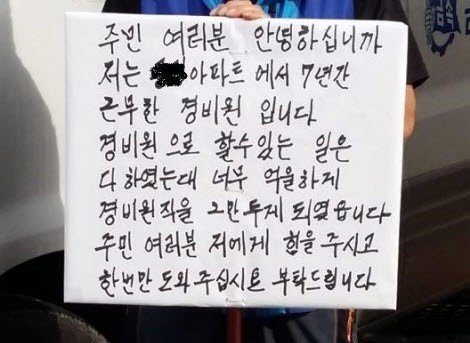 주민 여러분 안녕하십니까
저는 아파트에서 7년간
근무한 경비원 입니다
경비원으로 할수있는 일은
다하였는대 너무 억울하게
경비원직을 그만두게 되였읍니다
주민 여러분 저에게 힘을 주시고
한번만 도와 주십시요 부탁드립니다